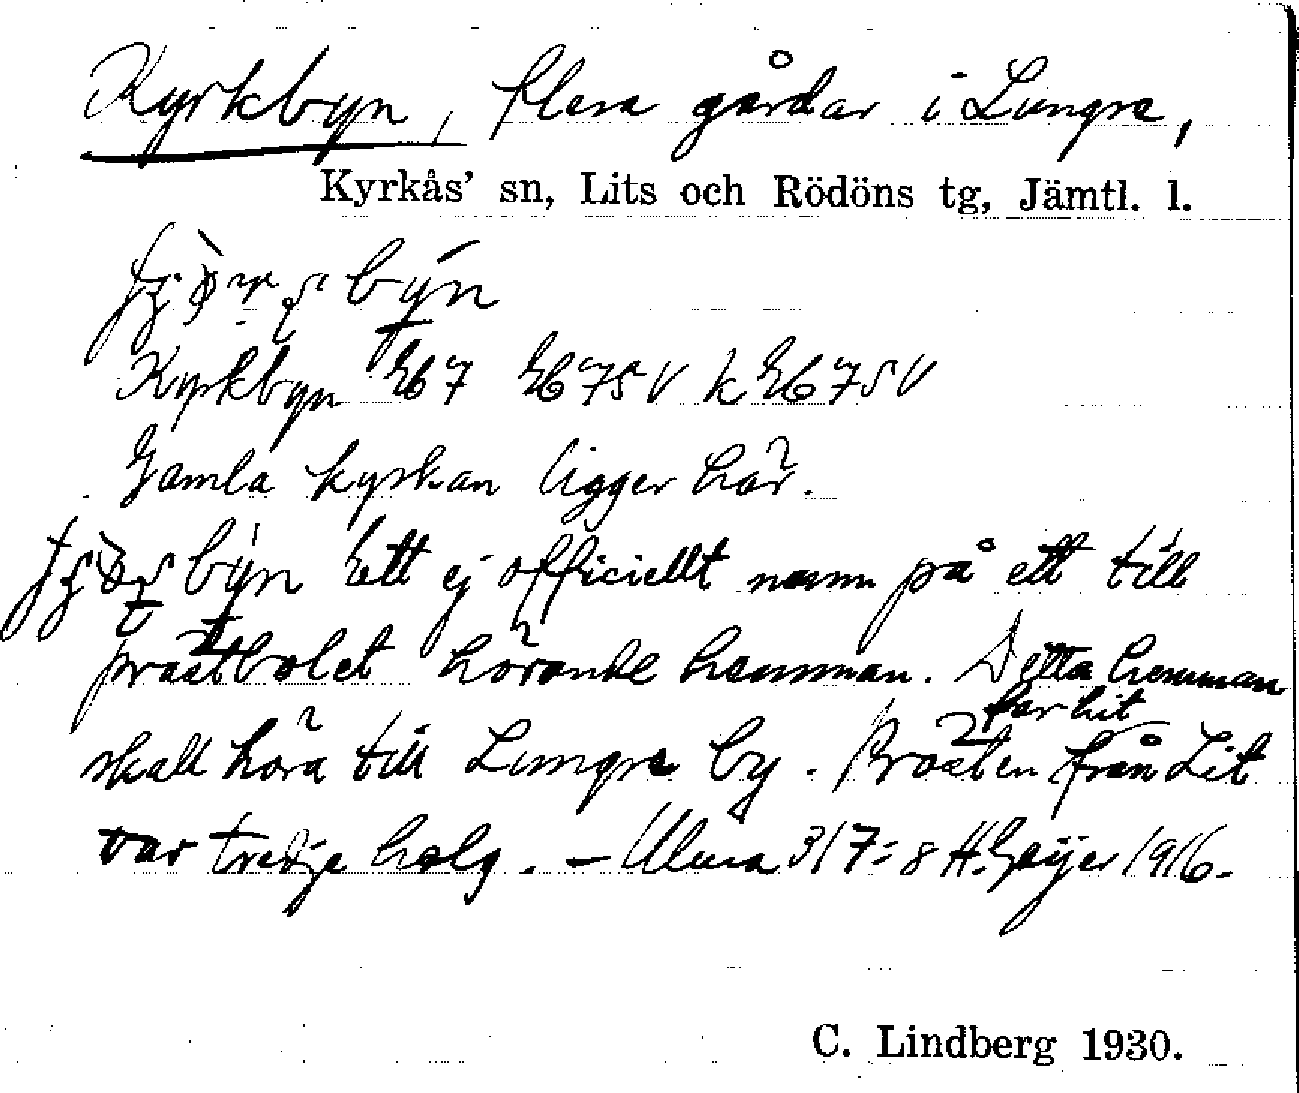 Kyrkbyn, flera gårdar i Lungre,
Kyrkås' sn, Lits och Rödöns tg, Jämtl. l.
býn
Kyrkbyn E67 E675V k E675V
Gamla kyrkan ligger här.
býn Ett ej officiellt namn på ett till
prästbolet hörande hemman. Detta hemman
skall höra till Lungre by. Prästen från Lit
for hit
var tredje helg. – Ulvsa 317:8 H. Geijer 1916.
C. Lindberg 1930.